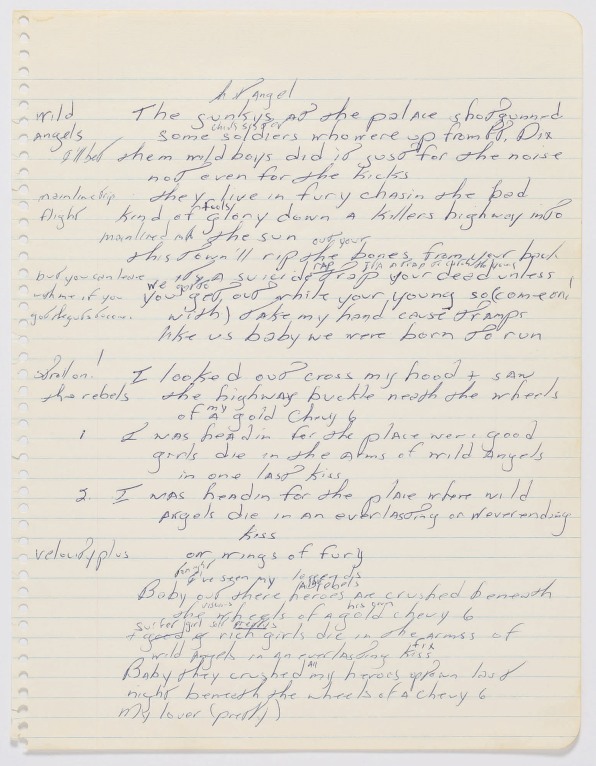 Angel
Wild The junkys at the palace shotgunned
Angels some soldiers who were up from Ft. Dix
I'll bet them wild boys did it just for the noise
not even for the kicks
mainline trip they live in fury chasin the bad
flight kind of glory down a killers highway into
mainlined into the sun
out your
this town'll rip the bones from your back
but you can leave its a suicide trap your dead unless
we gotta
with me if you you get out while your young so (come on!
got the guts with) take my hand cause tramps
like us baby we were born to run
stroll on! I looked out cross my hood + saw
the rebels the highway buckle neath the wheels
my
of a gold Chevy 6
1. I was headin for the place were good
girls die in the arms of wild Angels
in one last kiss
2. I was headin for the place where wild
Angels die in an everlasting or neverending
kiss
velocity plus on wings of fury
I've seen my legends
rebels
Baby out there heroes are crushed beneath
his own
the wheels of a gold chevy 6
+ good + rich girls die in the arms of
wild Angels in an everlasting kiss
fix
All
Baby they crushed my heroes uptown last
night beneath the wheels of a Chevy 6
My lover (pretty)